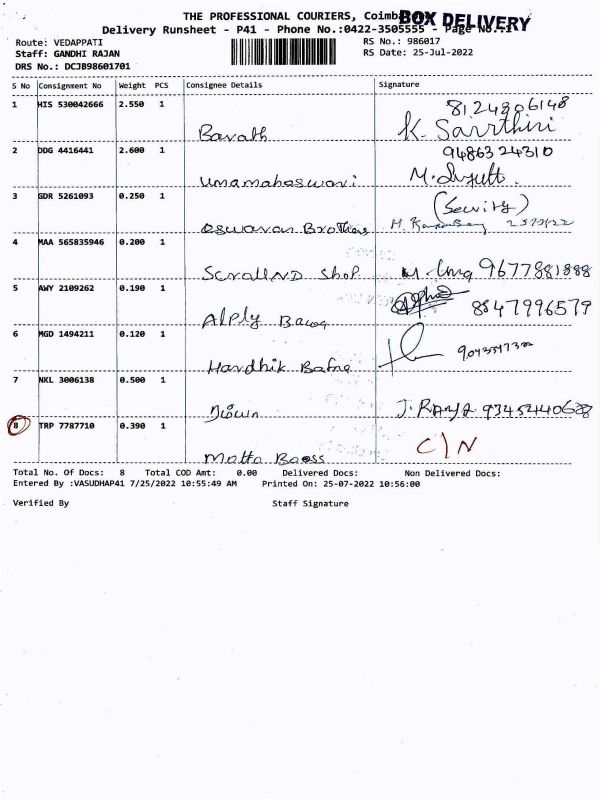 THE PROFESSIONAL COURIERS, Coimb
BOX DELIVERY
Delivery Runsheet - P41 - Phone No.:0422-3505555 - Page No.:1
Route: VEDAPPATI
RS No.: 986017
Staff: GANDHI RAJAN
RS Date: 25-Jul-2022
DRS No.: DCJB98601701
S No Consignment No Weight PCS Consignee Details Signature
1 HIS 530042666 2.550 1 8124806148
Barath K. Sarrthini
2 DDG 4416441 2.600 1 9486324310
Umamaheswari M.
3 GDR 5261093 0.250 1 (Security)
Eswaran Brothers M. 25/7/22
4 MAA 565835946 0.200 1
Scroll ND Shop M. Uma 9677881888
5 AWY 2109262 0.190 1 8847996579
Alply
6 MGD 1494211 0.120 1
Hardhik Bafna
7 NKL 3006138 0.500 1 J. RAMYA
8 TRP 7787710 0.390 1 C/N
Motto Baess
Total No. Of Docs: 8 Total COD Amt: 0.00 Delivered Docs: Non Delivered Docs:
Entered By :VASUDHAP41 7/25/2022 10:55:49 AM Printed On: 25-07-2022 10:56:00
Verified By Staff Signature